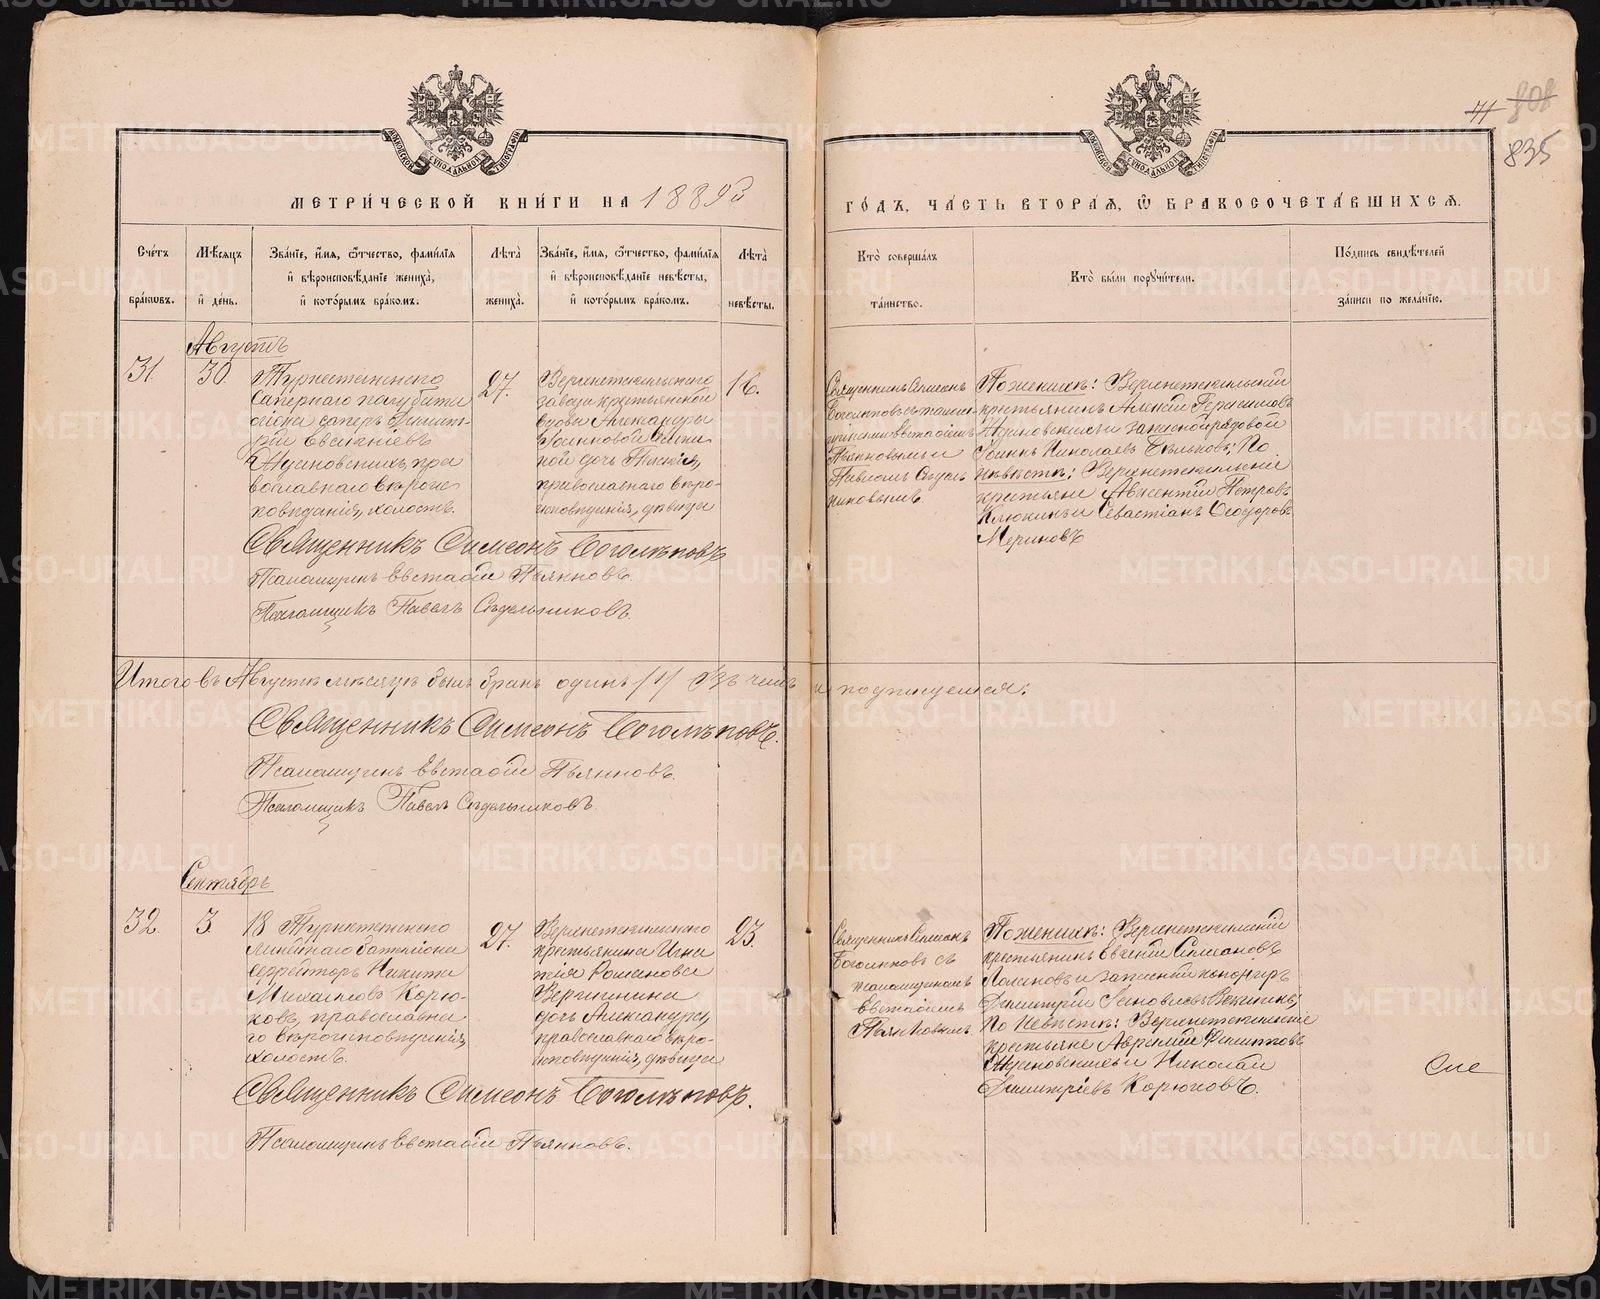 МЕТРИ́ЧЕСКОЙ КНИ́ГИ НА 1889й
ГО́ДЪ, ЧА́СТЬ ВТОРА́Я, Ѽ БРАКОСОЧЕТА́ВШИХСЯ.
835
Сче́тъ бра́ковъ.
Мѣ́сяцъ и де́нь.
Зва́ніе, и́мя, ѻ҆́тчество, фами́лія
и вѣроисповѣ́даніе жениха́,
и кото́рымъ бра́комъ.
Лѣта̀ жениха̀.
Зва́ніе, и́мя, ѻ҆́тчество, фами́лія
и вѣроисповѣ́даніе невѣ́сты,
и кото́рымъ бра́комъ.
Лѣта̀ невѣ́сты.
Кто̀ соверша́лъ та́инство.
Кто̀ бы́ли порꙋчи́тели.
По́дпись свидѣ́телей за́писи по жела́нію.
Августъ
31.
30.
Туркестанскаго
сапернаго полубата
ліона саперъ Димит-
рій Евсигніевъ
пра
вославнаго вѣроис
повѣданія, холостъ.
27.
Верхнетагильскаго
завода крестьянской
вдовы Александры
дочь
православнаго вѣро-
исповѣданія, дѣвица
16.
Священникъ Симеонъ
Боголѣповъ съ псалом-
щиками Евстафіемъ
Пьянковымъ и
Павломъ Сѣдель
никовымъ.
По женихѣ: Верхнетагильскій
крестьянинъ Алексій Герасимовъ
и запасной рядовой
Іоаннъ Николаевъ Бѣльковъ; По
невѣстѣ: Верхнетагильскіе
крестьяне Авксентій Петровъ
Клюкинъ и Севастіанъ Ѳеодоровъ
Мериновъ
Священникъ Симеонъ Боголѣповъ
Псаломщикъ Евстафій Пьянковъ.
Псаломщикъ Павелъ Сѣдельниковъ.
Итого въ Августѣ мѣсяцѣ былъ бракъ одинъ /1/ Въ чемъ и подписуемся:
Священникъ Симеонъ Боголѣповъ.
Псаломщикъ Евстафій Пьянковъ.
Псаломщикъ Павелъ Сѣдельниковъ
Сентябрь
32
3.
18 Туркестанскаго
линейнаго баталіона
ефрейторъ Никита
Михайловъ Корю-
ковъ, православна
го вѣроисповѣданія,
холостъ.
27.
Верхнетагильскаго
крестьянина Игна
тія Романова
Вершинина
дочь Александра,
православнаго вѣро-
исповѣданія, дѣвица
23.
Священникъ Симеонъ
Боголѣповъ съ
псаломщикомъ
Евстафіемъ
Пьянковымъ.
По женихѣ: Верхнетагильскій
крестьянинъ Евгеній Симеановъ
и запасный
Димитрій Іаковлевъ
По невѣстѣ: Верхнетагильскіе
крестьяне Авраамій Филипповъ
и Николай
Димитріевъ Корюковъ.
Священникъ Симеонъ Боголѣповъ.
Псаломщикъ Евстафій Пьянковъ.
METRIKI.GASO-URAL.RU